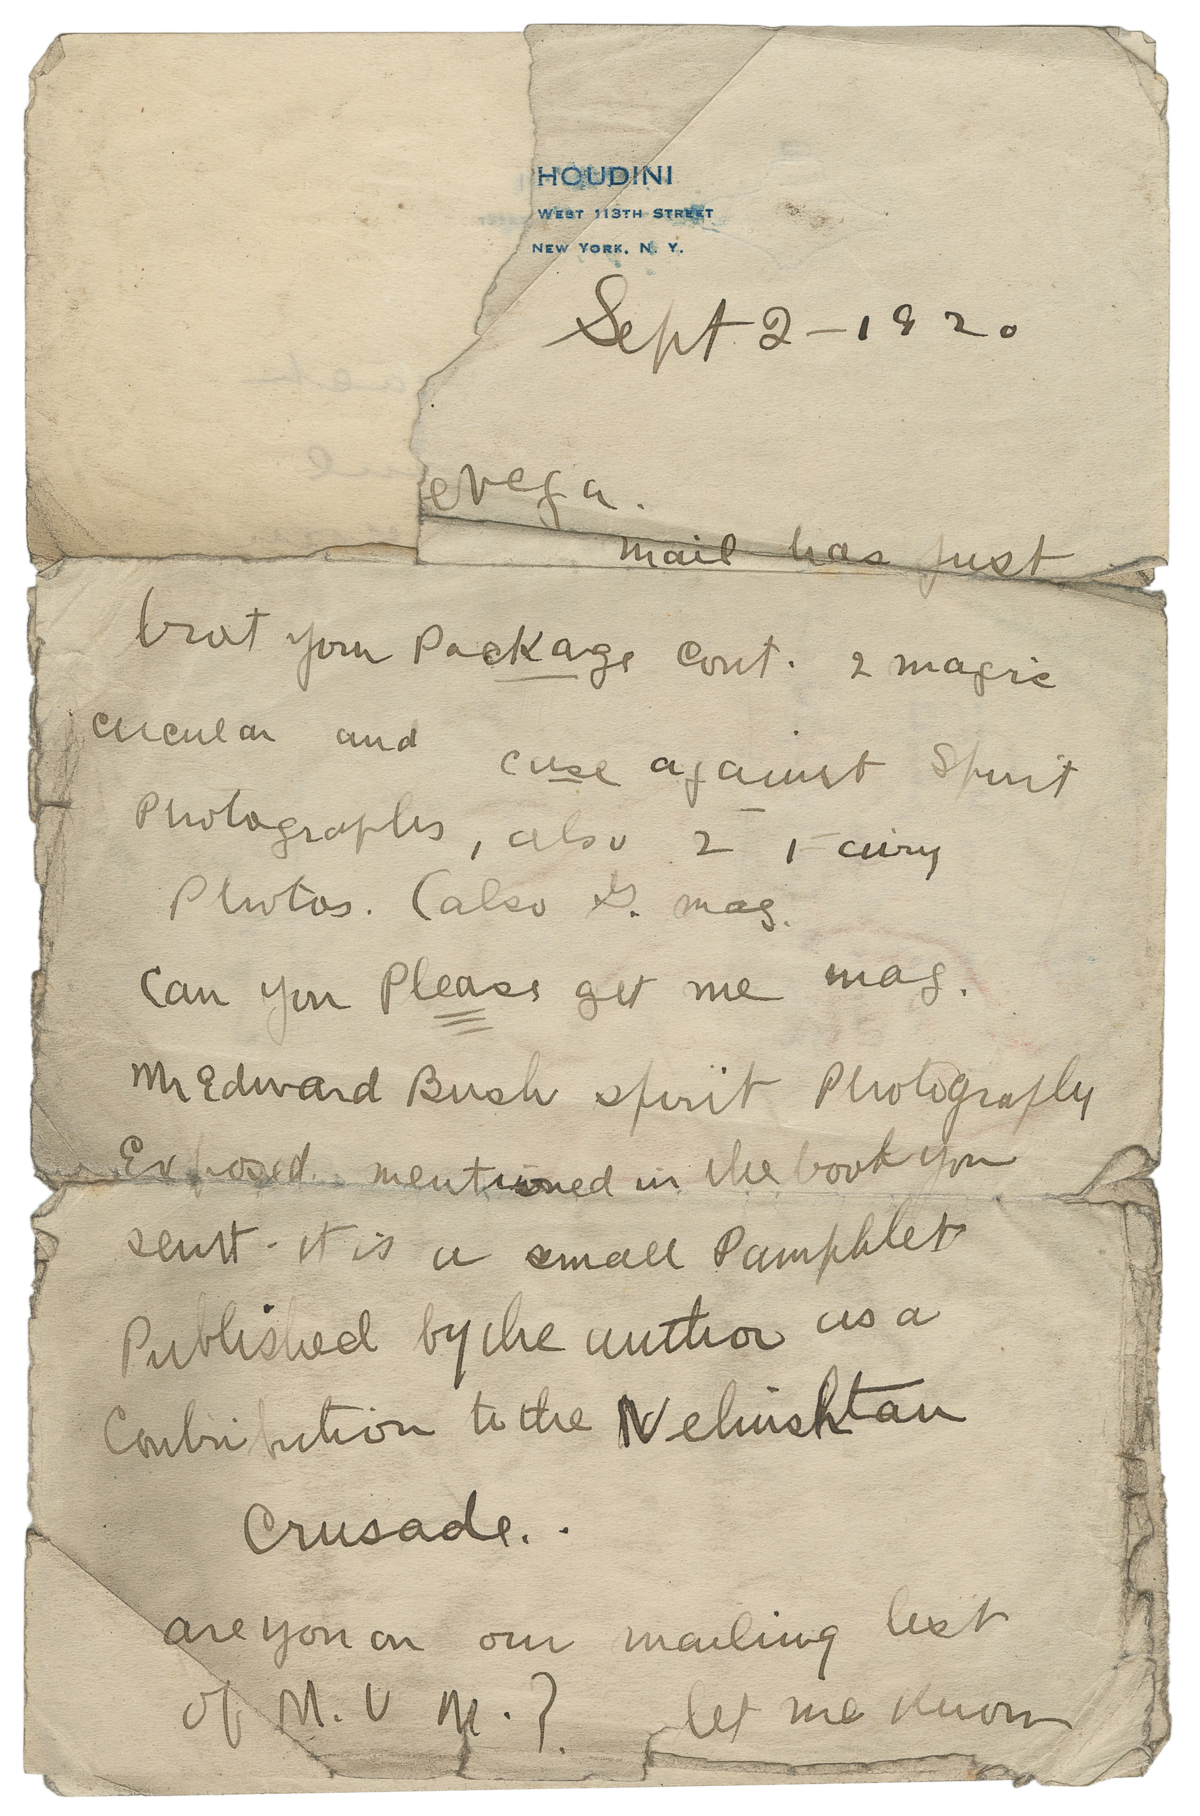 HOUDINI
WEST 113TH STREET
NEW YORK, N. Y.
Sept 2 - 1920
eVega.
mail has just
brot your Package cont. 2 magic
circular and case against Spirit
Photographs, also 2 Fairy
Photos. (also S. mag.
Can you Please get me mag.
Mr Edward Bush spirit Photography
Exposed. mentioned in the book you
sent - it is a small Pamphlet
Published by the author as a
Contribution to the Nehushtan
Crusade..
are you on our mailing list
of M. U M. ? let me know